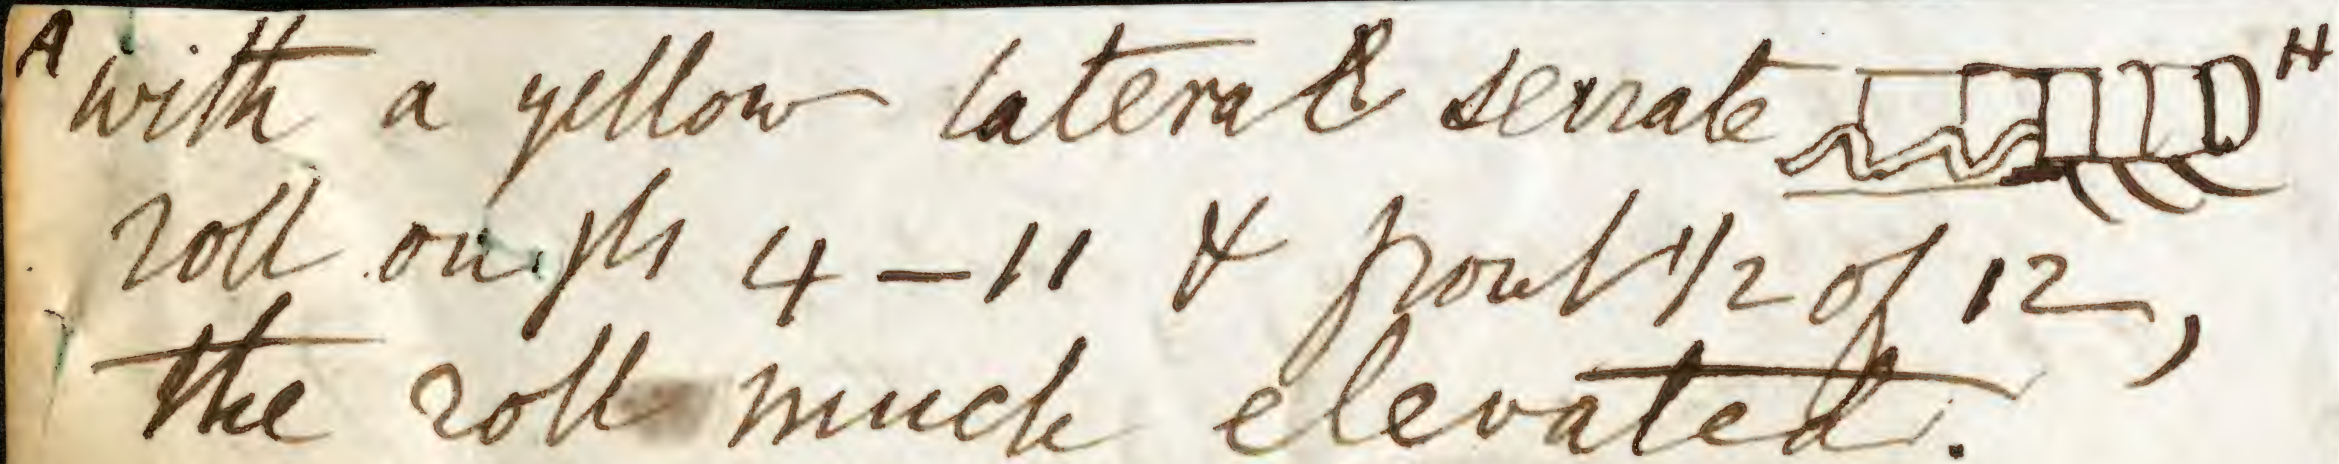 A with a yellow lateral serrate H
roll on jts 4 – 11 & front 1/2 of 12,
the roll much elevated.